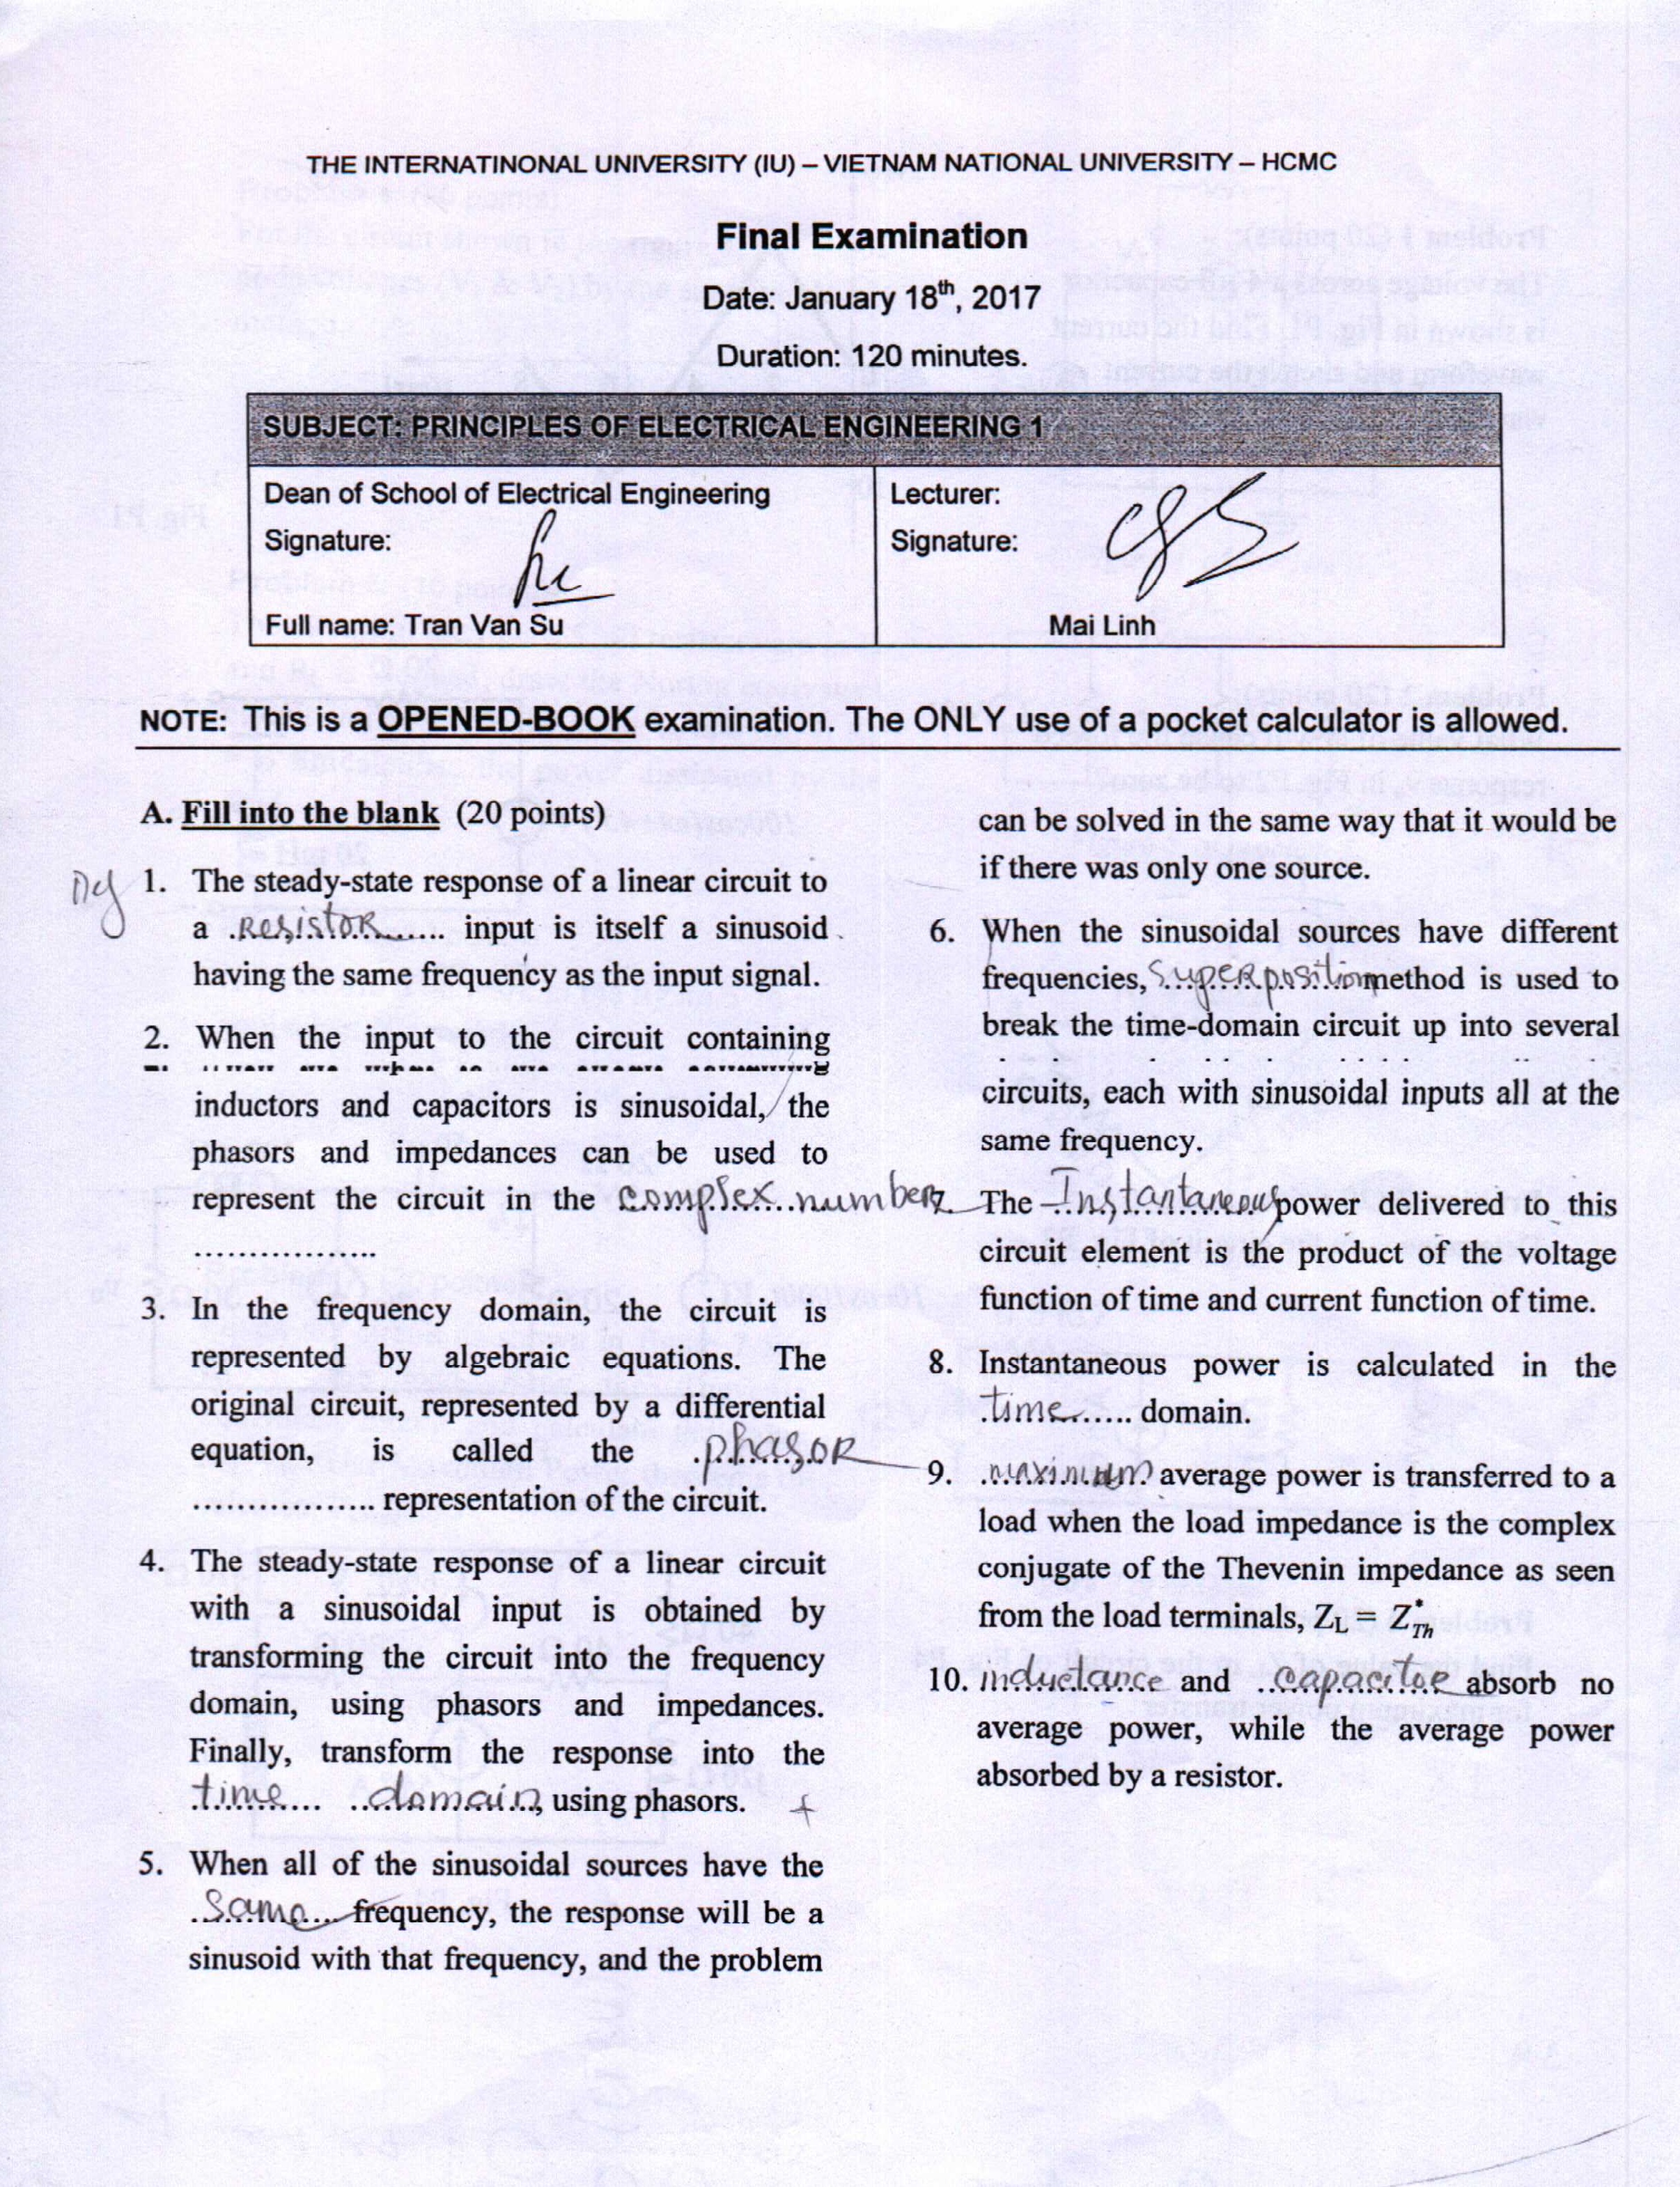 THE INTERNATINONAL UNIVERSITY (IU) – VIETNAM NATIONAL UNIVERSITY – HCMC
Final Examination
Date: January 18th, 2017
Duration: 120 minutes.
SUBJECT: PRINCIPLES OF ELECTRICAL ENGINEERING 1
Dean of School of Electrical Engineering
Signature:
Full name: Tran Van Su
Lecturer:
Signature:
Mai Linh
NOTE: This is a OPENED-BOOK examination. The ONLY use of a pocket calculator is allowed.
A. Fill into the blank (20 points)
1. The steady-state response of a linear circuit to
a .Resistor...... input is itself a sinusoid
having the same frequency as the input signal.
2. When the input to the circuit containing
inductors and capacitors is sinusoidal, the
phasors and impedances can be used to
represent the circuit in the complex number
.................
3. In the frequency domain, the circuit is
represented by algebraic equations. The
original circuit, represented by a differential
equation, is called the .phasor
................. representation of the circuit.
4. The steady-state response of a linear circuit
with a sinusoidal input is obtained by
transforming the circuit into the frequency
domain, using phasors and impedances.
Finally, transform the response into the
time domain, using phasors.
5. When all of the sinusoidal sources have the
same frequency, the response will be a
sinusoid with that frequency, and the problem
can be solved in the same way that it would be
if there was only one source.
6. When the sinusoidal sources have different
frequencies, superposition method is used to
break the time-domain circuit up into several
circuits, each with sinusoidal inputs all at the
same frequency.
7. The Instantaneous power delivered to this
circuit element is the product of the voltage
function of time and current function of time.
8. Instantaneous power is calculated in the
.time...... domain.
9. maximum average power is transferred to a
load when the load impedance is the complex
conjugate of the Thevenin impedance as seen
from the load terminals, ZL = Z*Th
10. inductance and capacitor absorb no
average power, while the average power
absorbed by a resistor.